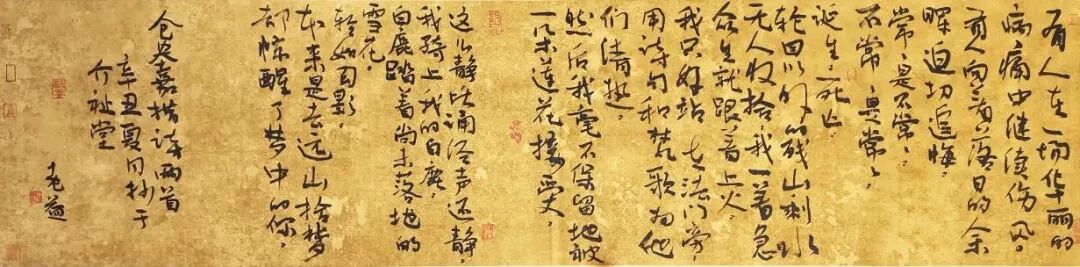 有人在一场华丽的
病痛中继续伤风。
有人向着落日的余
晖迫切追悔。
常是不常，
不常是常，
诞生—死亡。
轮回以外的残山剩水
无人收拾，我一着急
众生就跟着上火，
我只好站在法门旁，
用诗句和梵歌为他
们清热。
然后我毫不保留地被
一朵莲花接受。
这么静比诵经声还静，
我骑上我的白鹿，
白鹿踏着尚未落地的
雪花，
轻如幻影，
本来是去远山拾梦
却惊醒了梦中的你。
仓央嘉措诗两首
辛丑夏月抄于
介祉堂